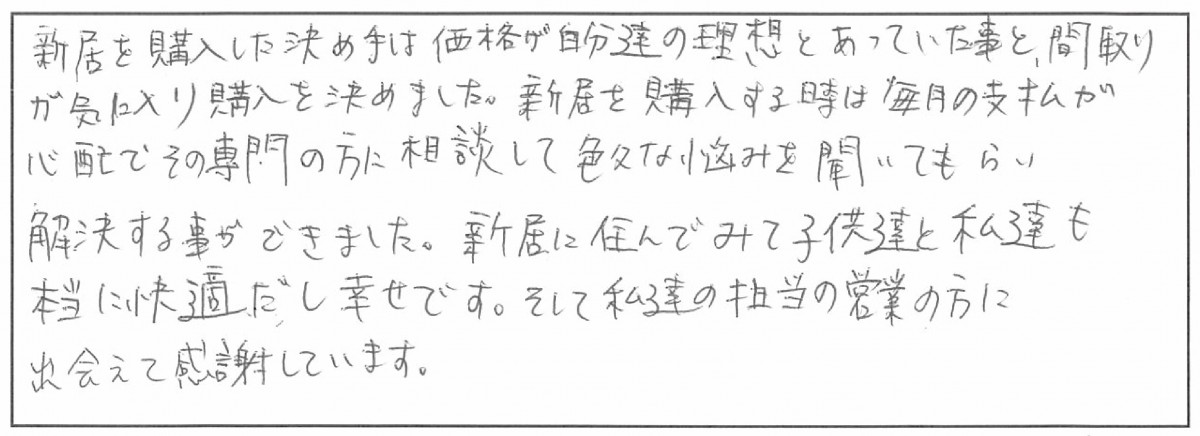 新居を購入した決め手は価格が自分達の理想とあっていた事と、間取り
が気に入り購入を決めました。新居を購入する時は毎月の支払が
心配でその専門の方に相談して色々な悩みを聞いてもらい
解決する事ができました。新居に住んでみて子供達と私達も
本当に快適だし幸せです。そして私達の担当の営業の方に
出会えて感謝しています。